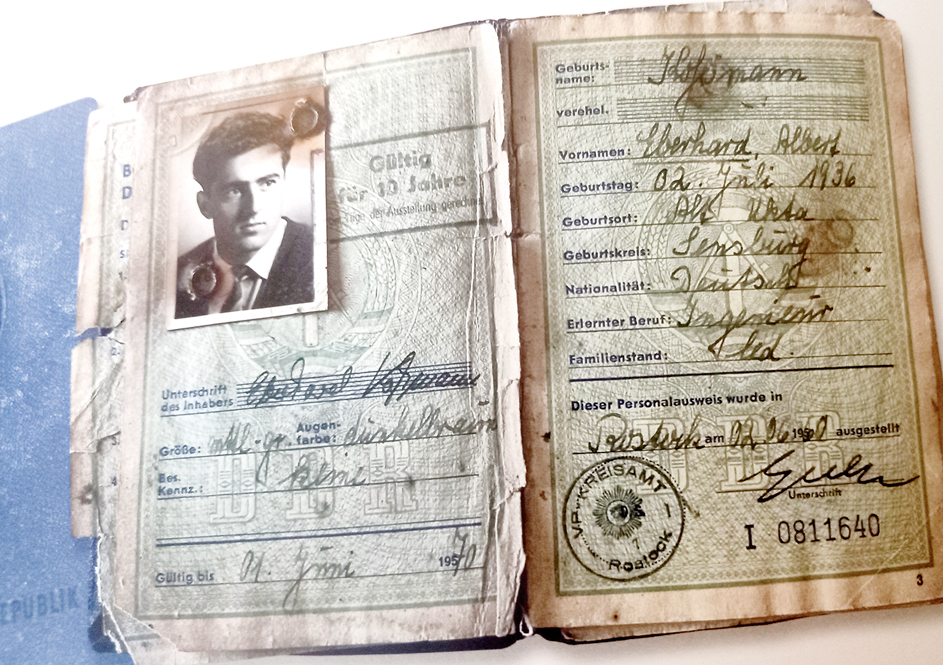 EPUBLIK
Gültig
für 10 Jahre
Tage der Ausstellung gerechnet
Unterschrift
des Inhabers Eberhard Koßmann
Größe: mtl-gr. Augenfarbe: dunkelbraun
Bes.
Kennz.: keine
DDR
Gültig bis 01. Juni 1970
Geburtsname: Koßmann
verehel.
Vornamen: Eberhard, Albert
Geburtstag: 02. Juli 1936
Geburtsort: Alt Ukta
Geburtskreis: Sensburg
Nationalität: Deutsch
Erlernter Beruf: Ingenieur
Familienstand: led.
Dieser Personalausweis wurde in
Rostock am 02.06 1960 ausgestellt
Unterschrift
VP-KREISAMT
7
Rostock
I 0811640
3